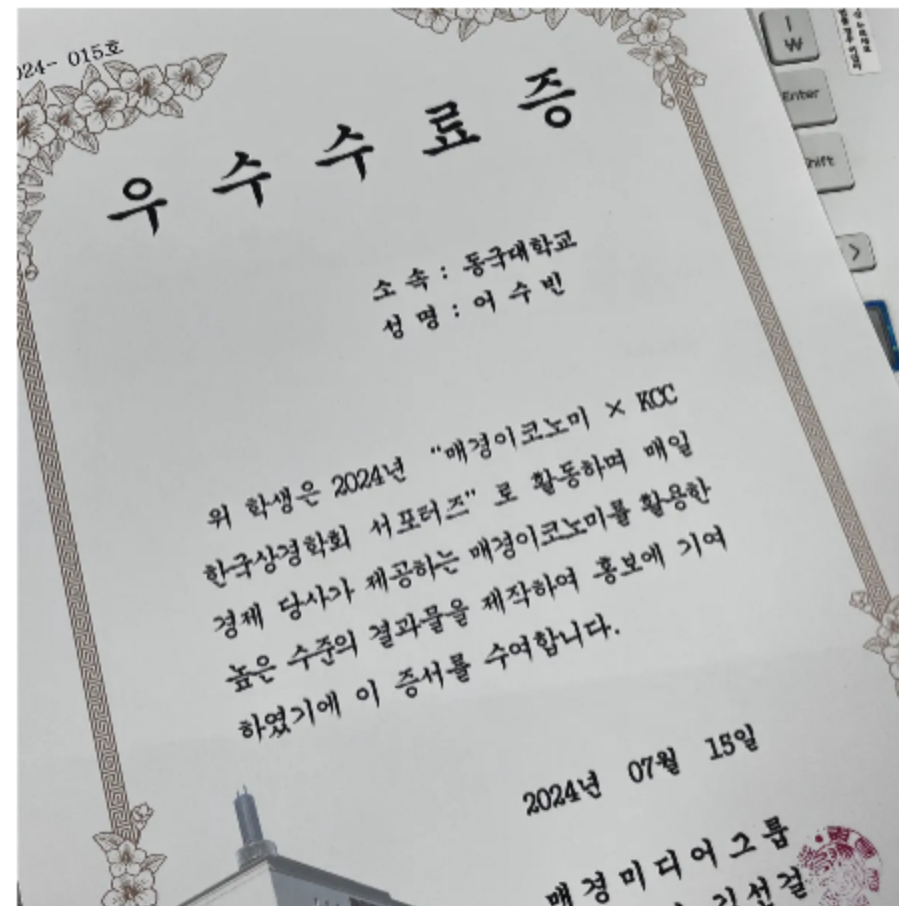 024- 015호
우수수료증
소속 : 동국대학교
성명 : 어수빈
위 학생은 2024년 “매경이코노미 × KCC
한국상경학회 서포터즈” 로 활동하며 매일
경제 당사가 제공하는 매경이코노미를 활용한
높은 수준의 결과물을 제작하여 홍보에 기여
하였기에 이 증서를 수여합니다.
2024년 07월 15일
매경미디어그룹
김선걸
I
W
Enter
Shift
>